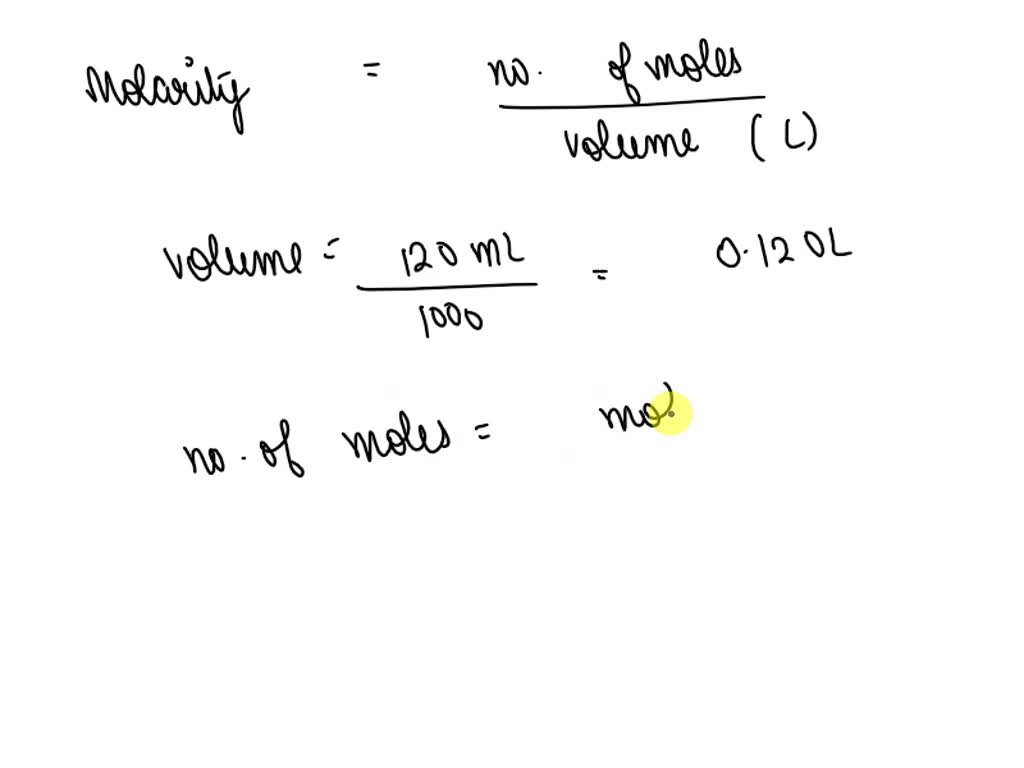 Molarity = no. of moles
volume (L)
volume = 120 mL = 0.120L
1000
no. of moles = mol